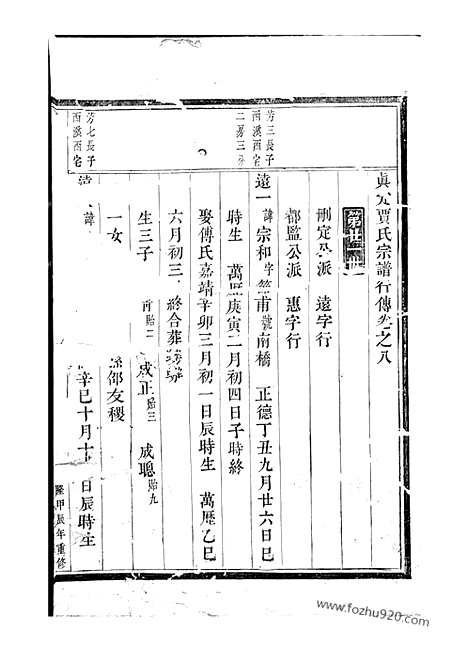 真定賈氏宗譜行傳卷之八
刑定公派 遠字行
都監公派 惠字行
芳三長子
西溪西宅
二房三
遠一 諱宗和字 甫號南橋 正德丁丑九月廿六日巳
時生 萬曆庚寅二月初四日子時終
娶傅氏嘉靖辛卯三月初一日辰時生 萬歷乙巳
六月初三 終合葬
生三子 貽二 成正貽三 成聰貽九
一女 邵友稷
芳七長子
西溪西宅
諱 辛巳十月十 日辰時生
隆甲辰年重修
www.fozhu920.com